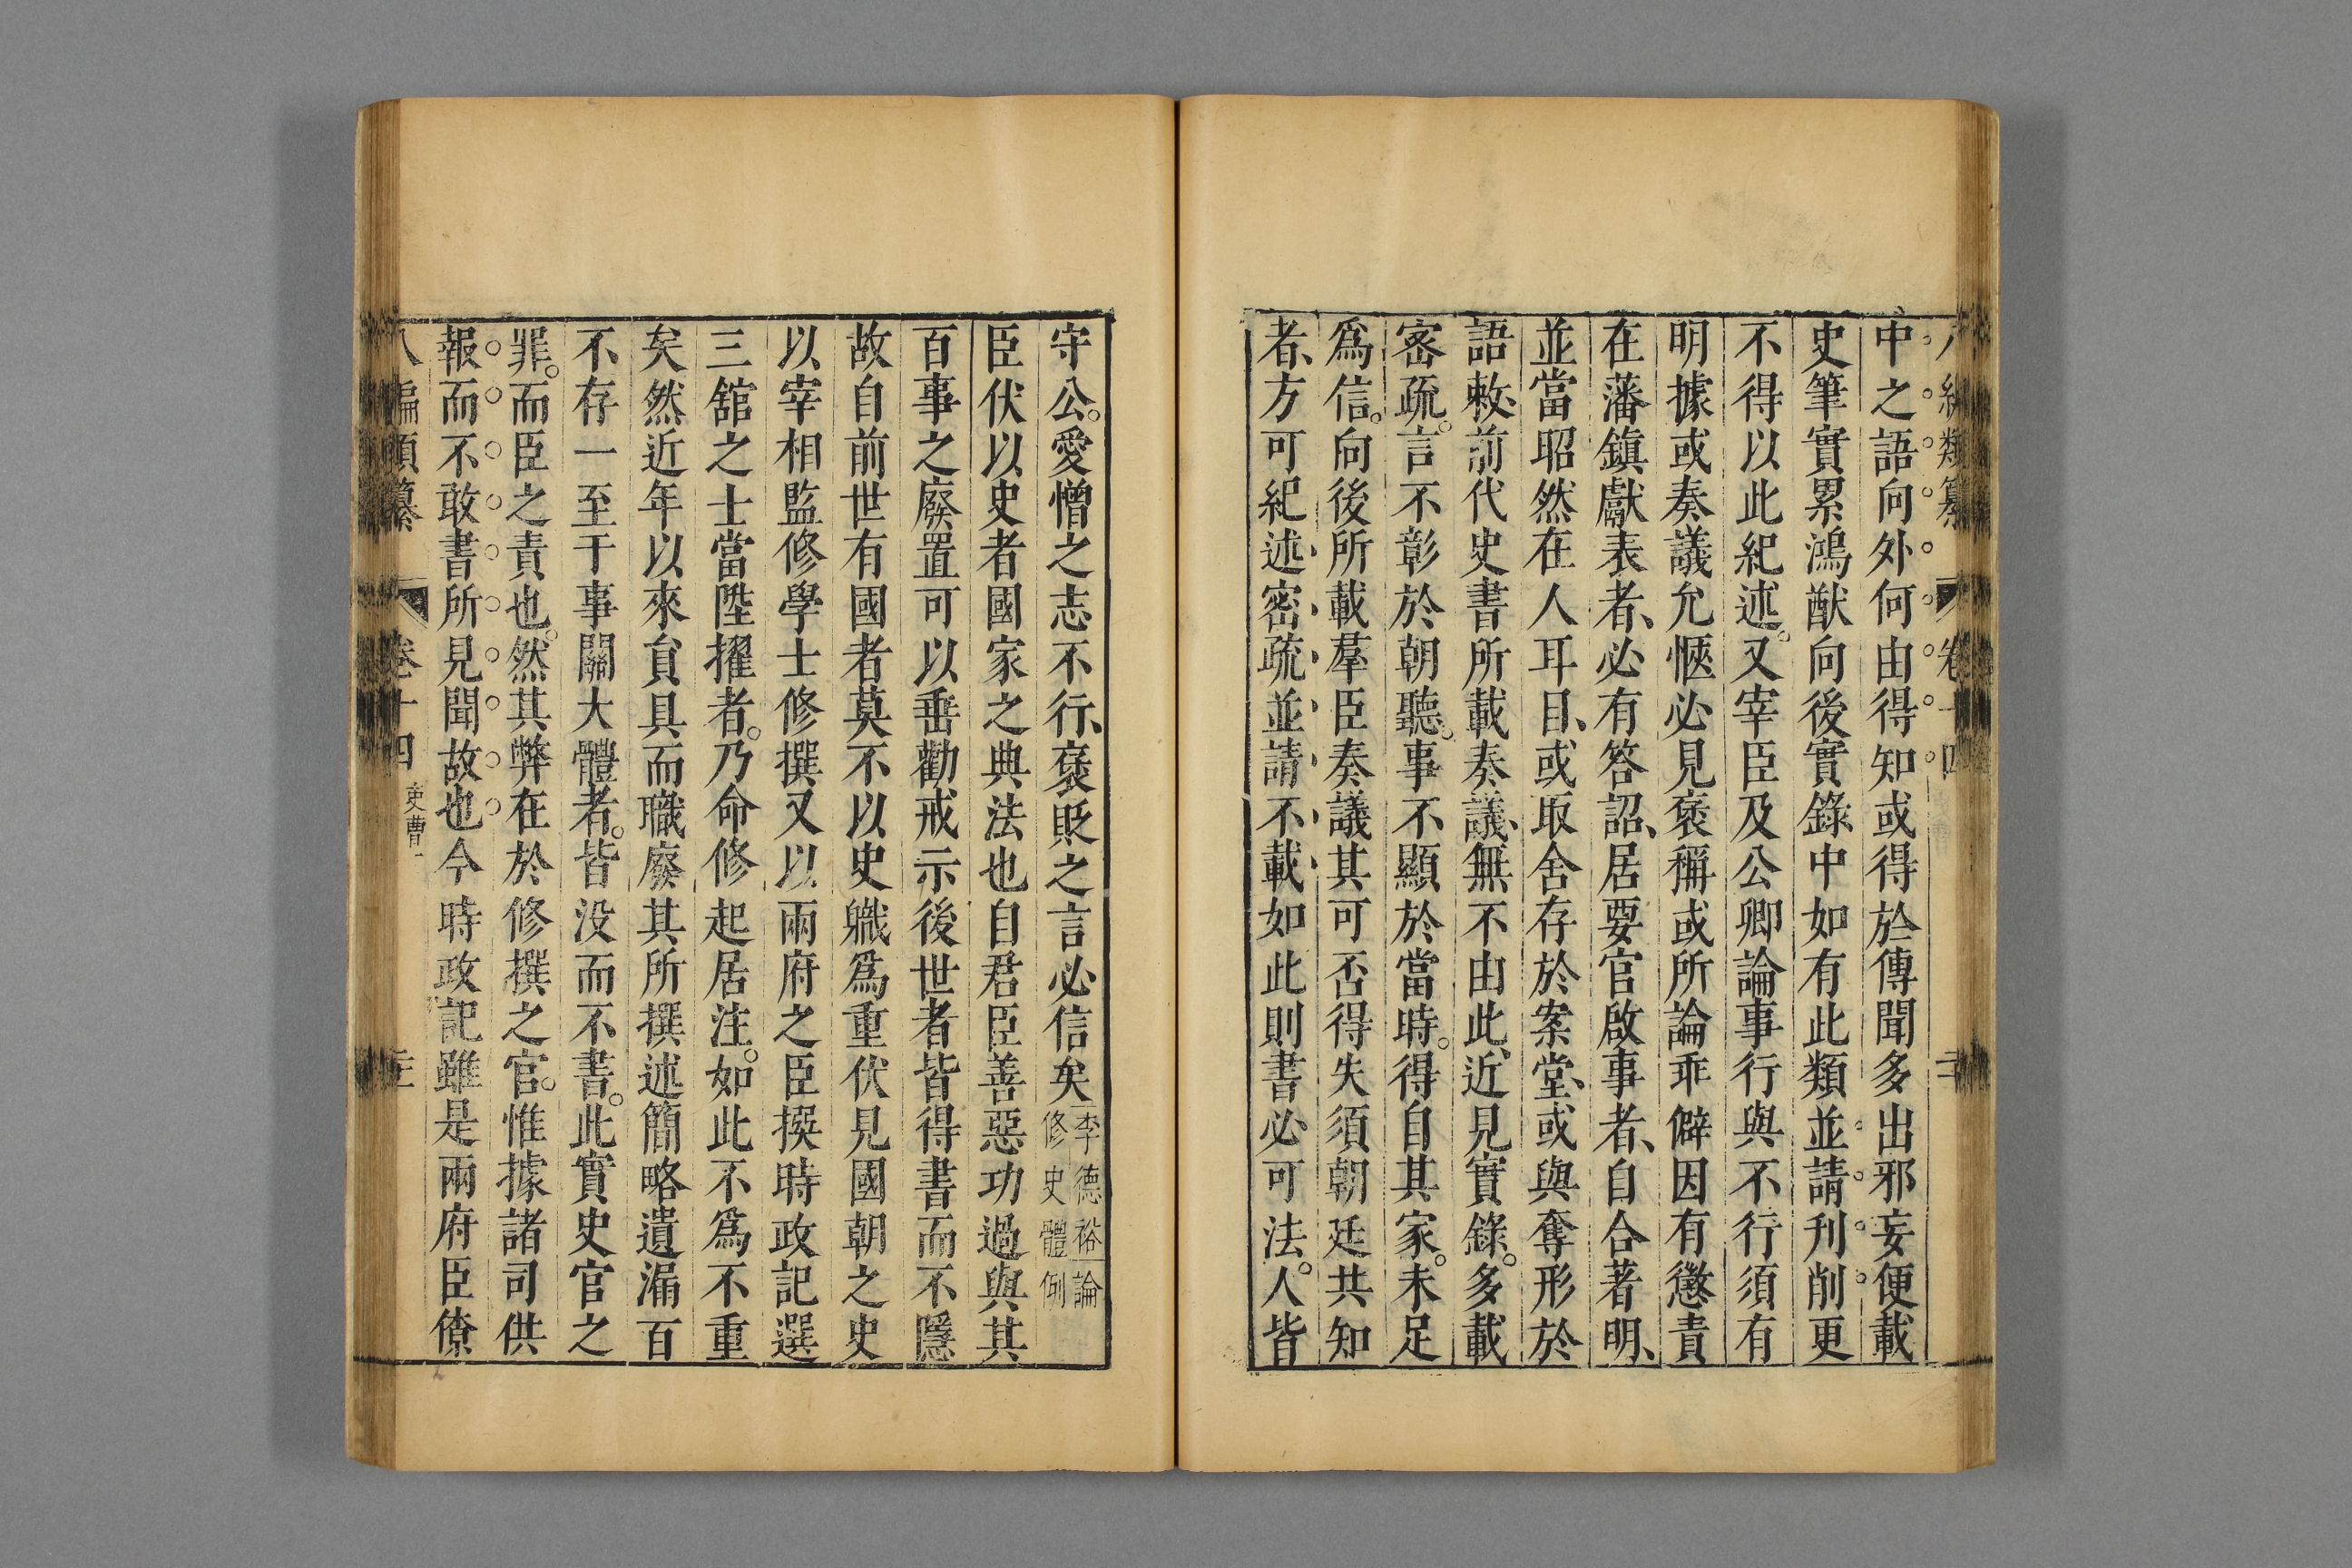 中之語向外何由得知或得於傳聞多出邪妄便載
史筆實累鴻猷向後實錄中如有此類並請刋削更
不得以此紀述。又宰臣及公卿論事行與不行須有
明據或奏議允愜必見褒稱或所論乖僻因有懲責
在藩鎮獻表者、必有答詔、居要官啟事者、自合著明、
並當昭然在人耳目、或取舍存於案堂、或與奪形於
語敕、前代史書所載奏議、無不由此、近見實錄。多載
密疏。言不彰於朝聽。事不顯於當時。得自其家。未足
爲信。向後所載羣臣奏議其可否得失須朝廷共知
者、方可紀述、密疏、並請不載、如此則書必可法。人皆
守公。愛憎之志不行、褒貶之言必信矣
李德裕論
修史體例
臣伏以史者國家之典法也自君臣善惡功過與其
百事之廢置可以垂勸戒示後世者皆得書而不隱
故自前世有國者莫不以史職爲重伏見國朝之史
以宰相監修學士修撰又以兩府之臣撰時政記選
三舘之士當陞擢者。乃命修起居注。如此不爲不重
矣然近年以來貟具而職廢其所撰述簡略遺漏百
不存一至于事關大體者。皆没而不書。此實史官之
罪。而臣之責也。然其弊在於修撰之官。惟據諸司供
報而不敢書所見聞故也今時政記雖是兩府臣僚
八編類纂 卷十四 吏曹一